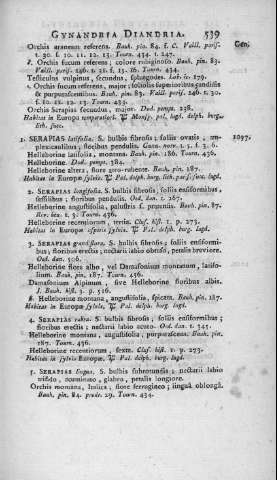 GYNANDRIA DIANDRIA. 539
Orchis araneum referens. Bauh. pin. 84. f. C. Vaill. paris.
t. 30. f. 10. 11. 12. 13. Tourn. 434. t. 247.
Orchis fucum referens, colore rubiginoso. Bauh. pin. 83.
Vaill. paris. 146. t. 31. f. 15. 16. Tourn. 434.
Testiculus vulpinus, secundus, sphegodes. Lob. ic. 179.
Orchis fucum referens, major, foliolis superioribus candidis
& purpurascentibus. Bauh. pin. 83. Vaill. paris. 146. t. 30.
f. 10. 11. 12. 13. Tourn. 433.
Orchis serapias secundus, major. Dod. pempt. 238.
Habitat in Europæ temperatioris. Monsp. pal. lugd. delph. burg.
lith. succ.
1. SERAPIAS latifolia. S. bulbis fibrosis, foliis ovatis, am- 1097.
plexicaulibus; floribus pendulis.
Helleborine latifolia, montana. Bauh. pin. 186. Tourn. 436.
Helleborine. Dod. pempt. 384.
Helleborine altera, flore atro-rubente. Bauh. pin. 187.
Habitat in Europæ sylvis. Pal. delph. burg. lith. paris. succ. lugd.
2. SERAPIAS longifolia. S. bulbis fibrosis, foliis ensiformibus,
sessilibus; floribus pendulis. Oed. dan. t. 267.
Helleborine angustifolia, palustris f. pratensis. Bauh. pin. 87.
t. 5. Tourn. 436.
Helleborine recentiorum, tertia. Clus. hist. 1. p. 273.
Habitat in Europæ asperis sylvis. Pal. delph. burg. lugd.
3. SERAPIAS grandiflora. S. bulbis fibrosis, foliis ensiformi-
bus; floribus erectis; nectarii labio obtuso, petalis breviore.
Oed. dan. 506.
Helleborine flore albo, vel Damasonium montanum, latifo-
lium. Bauh. pin. 187. Tourn. 436.
Damasonium Alpinum, sive Helleborine floribus albis.
J. Bauh. hist. 3. p. 516.
Helleborine montana, angustifolia, spicata. Bauh. pin. 187.
Habitat in Europæ sylvis. Pal. delph. burg. lugd.
4. SERAPIAS rubra. S. bulbis fibrosis; foliis ensiformibus;
floribus erectis; nectarii labio acuto. Oed. dan. t. 345.
Helleborine montana, angustifolia, purpurascens. Bauh. pin.
187. Tourn. 436.
Helleborine recentiorum, sexta. Clus. hist. 1. p. 273.
Habitat in sylvis Europæ. Pal. delph. burg. lugd.
5. SERAPIAS lingua. S. bulbis subrotundis; nectarii labio
trifido, acuminato, glabro, petalis longiore.
Orchis montana, Italica, flore ferrugineo; linguâ oblongâ.
Bauh. pin. 84. prodr. 29. Tourn. 434.